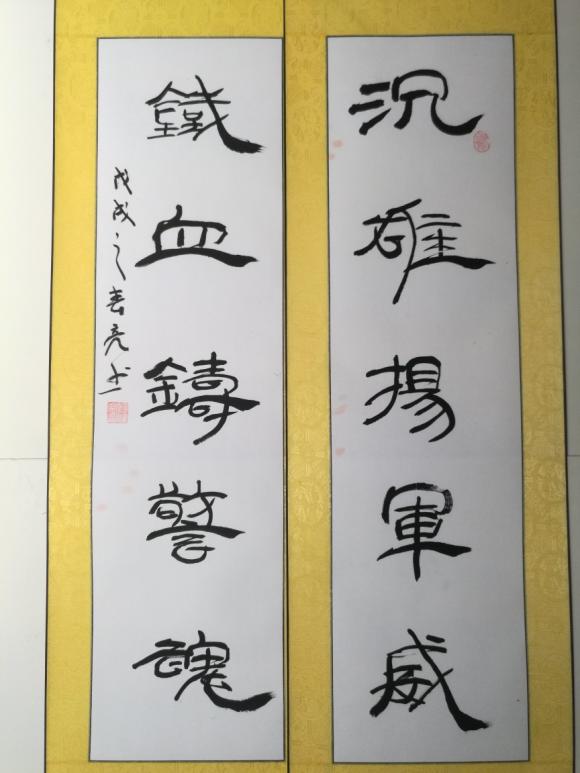 沉雄揚軍威
鐵血鑄警魂
戊戌之春亮书